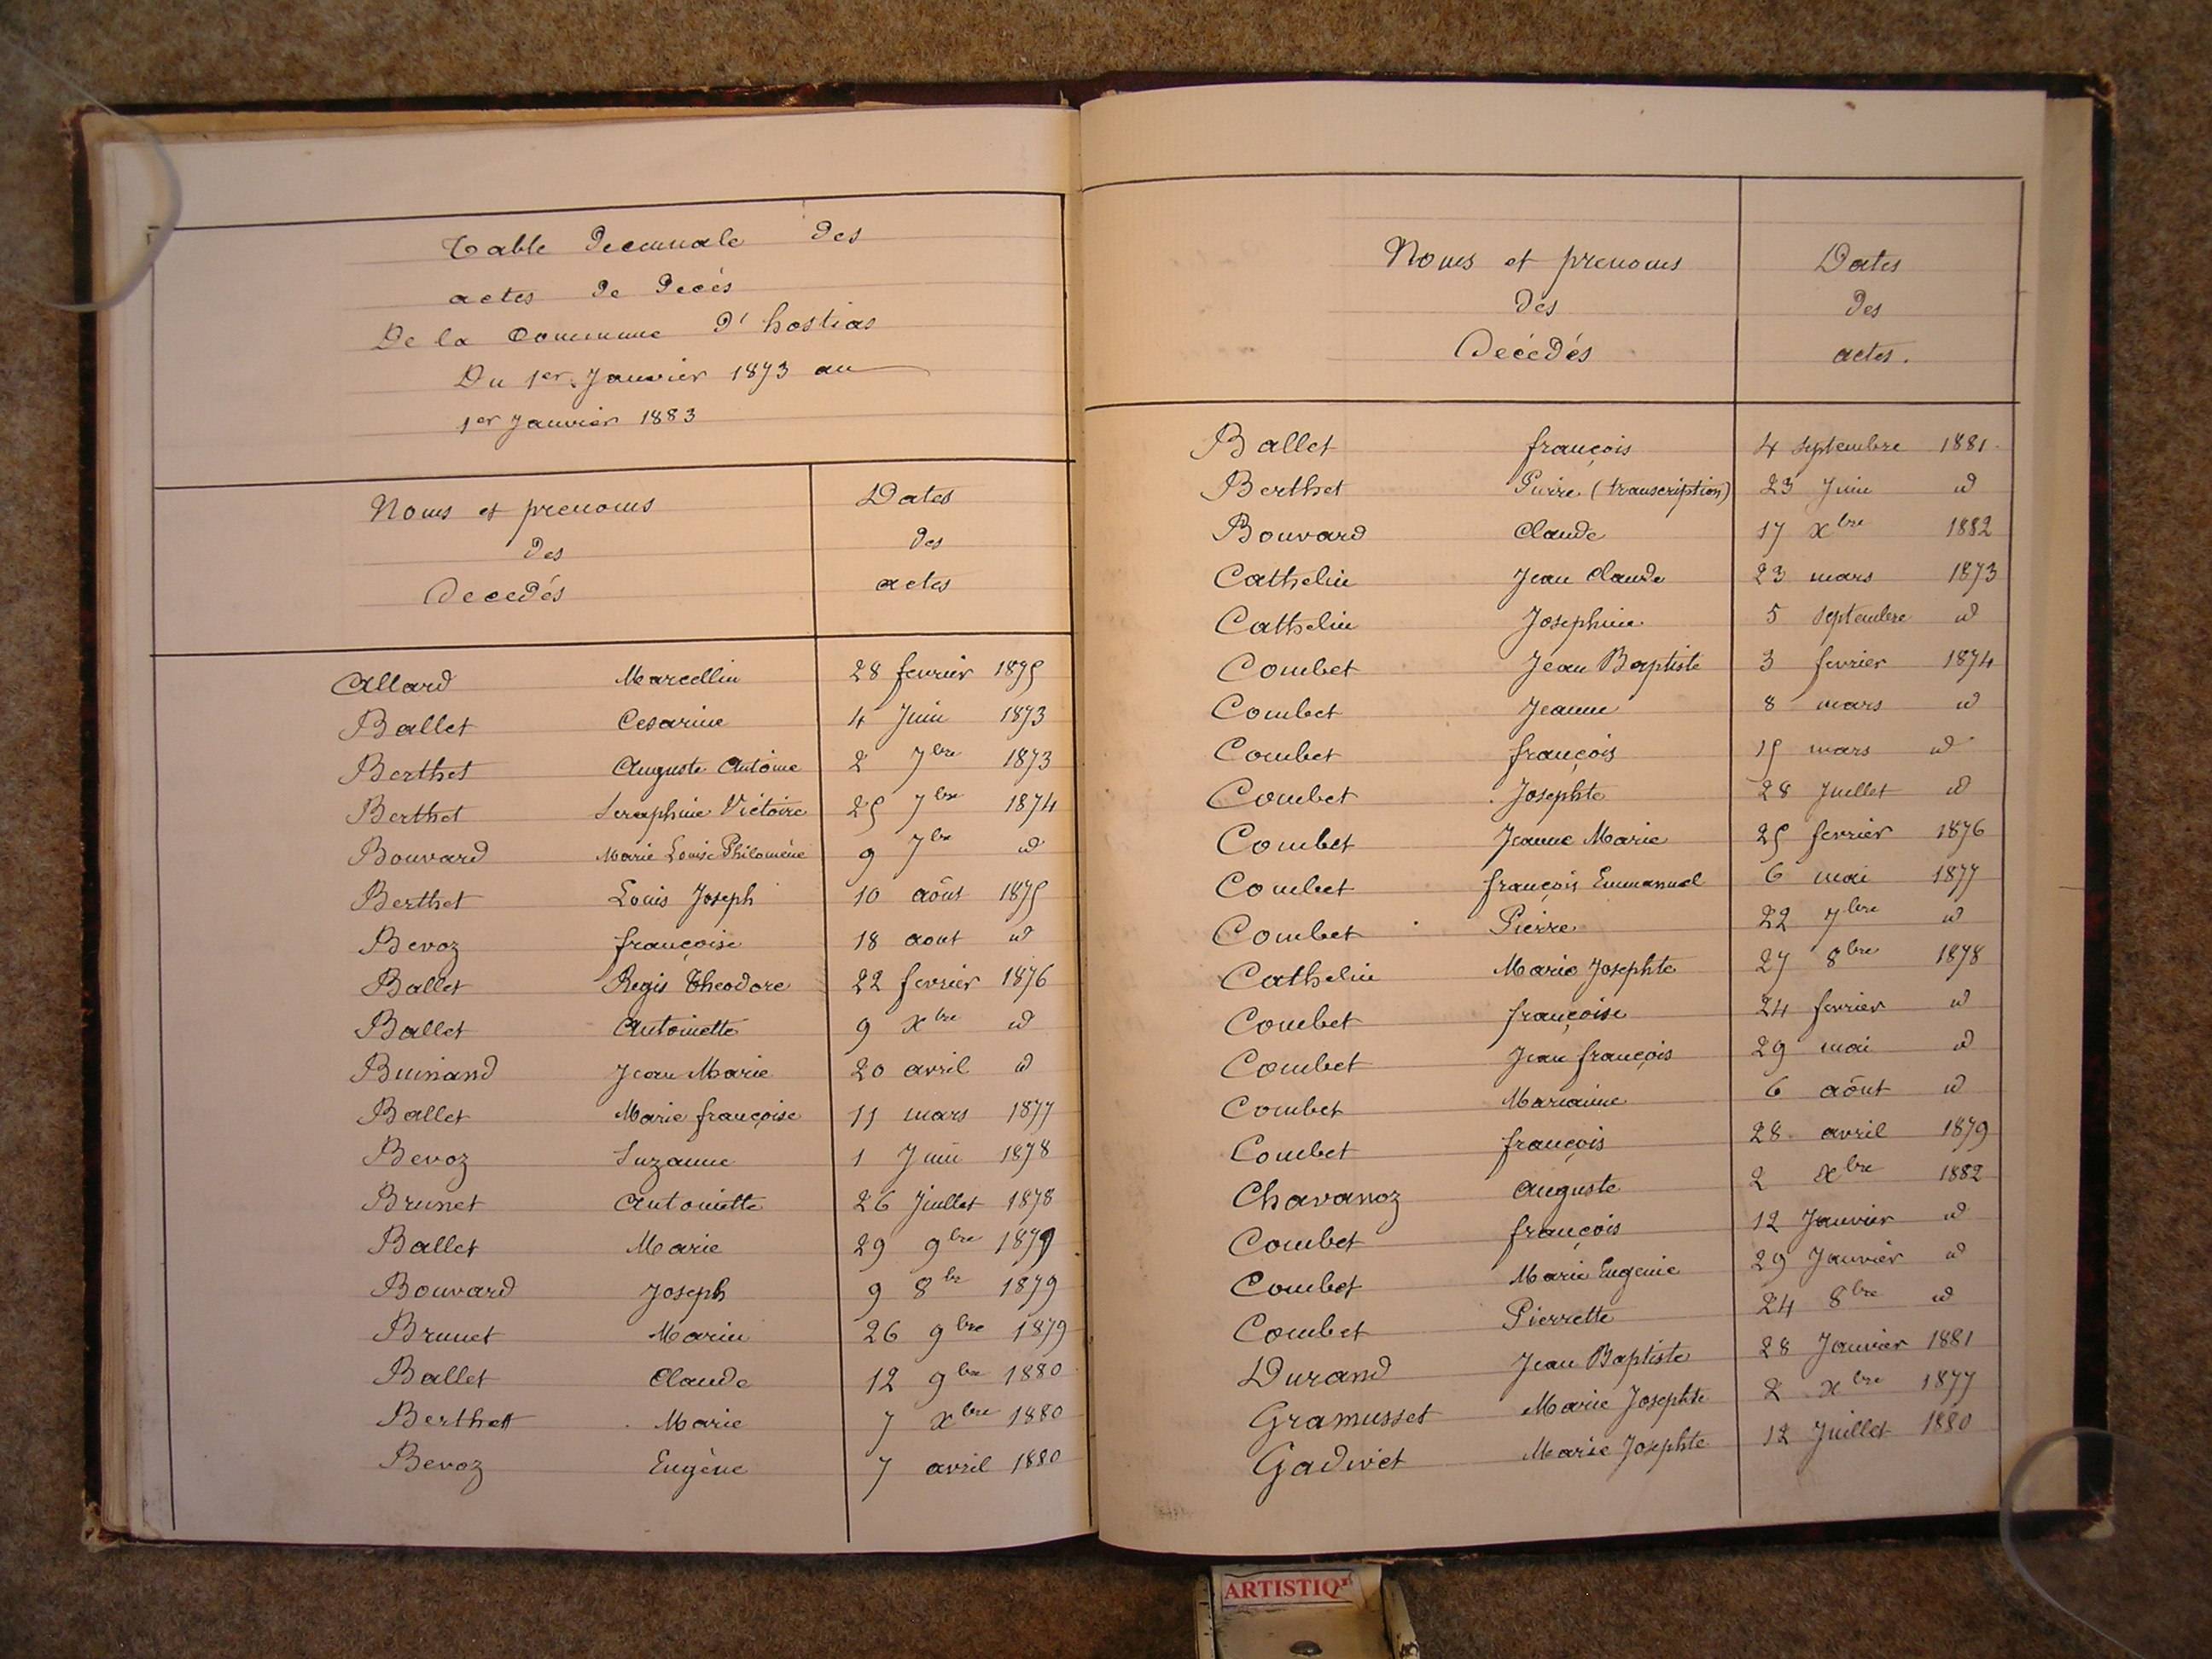 Table Decennale des
actes de Décés
De la Commune d'hostias
Du 1er Janvier 1873 au
1er Janvier 1883
Noms et prenoms Dates
des des
Decedés actes
Allard Marcellin 28 fevrier 1875
Ballet Cesarine 4 Juin 1873
Berthet Auguste Antoine 2 7bre 1873
Berthet Seraphine Victoire 25 7bre 1874
Bouvard Marie Louise Philomène 9 7bre id
Berthet Louis Joseph 10 aôut 1875
Bevoz françoise 18 aout id
Ballet Regis Theodore 22 fevrier 1876
Ballet Antoinette 9 xbre id
Buinand Jean Marie 20 avril id
Ballet Marie françoise 11 mars 1877
Bevoz Suzanne 1 Juin 1878
Brunet Antoinette 26 Juillet 1878
Ballet Marie 29 9bre 1879
Bouvard Joseph 9 8bre 1879
Brunet Marin 26 9bre 1879
Ballet Claude 12 9bre 1880
Berthet Marie 7 xbre 1880
Bevoz Eugène 7 avril 1880
Noms et prenoms Dates
des des
Décédés actes.
Ballet françois 4 Septembre 1881
Berthet Pierre (transcription) 23 Juin id
Bouvard Claude 17 xbre 1882
Cathelin Jean Claude 23 mars 1873
Cathelin Josephine 5 Septembre id
Combet Jean Baptiste 3 fevrier 1874
Combet Jeanne 8 mars id
Combet françois 15 mars id
Combet Josephte 28 Juillet id
Combet Jeanne Marie 25 fevrier 1876
Combet françois Emmanuel 6 mai 1877
Combet Pierre 22 7bre id
Cathelin Marie Josephte 27 8bre 1878
Combet françoise 24 fevrier id
Combet Jean françois 29 mai id
Combet Marianne 6 aôut id
Combet françois 28 avril 1879
Chavanoz Auguste 2 xbre 1882
Combet françois 12 Janvier id
Combet Marie Eugenie 29 Janvier id
Combet Pierrette 24 8bre id
Durand Jean Baptiste 28 Janvier 1881
Gramusset Marie Josephte 2 xbre 1877
Gadivet Marie Josephte 12 Juillet 1880
ARTISTIQ